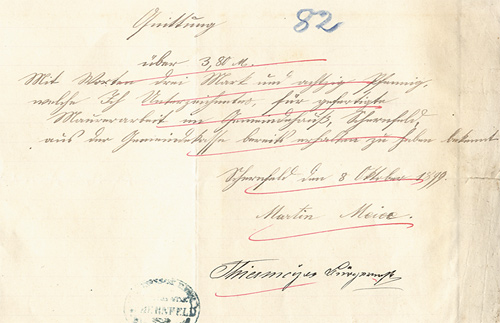 Quittung
82
über 3,80 M.
Mit Worten drei Mark und achtzig Pfennig,
welche Ich Unterzeichneter, für gefertigte
Maurerarbeit im Gemeindehauß, Schernfeld,
aus der Gemeindekasse bereits erhalten zu haben bekennt
Schernfeld den 8 Oktober
Martin Meier.
Bürgermst